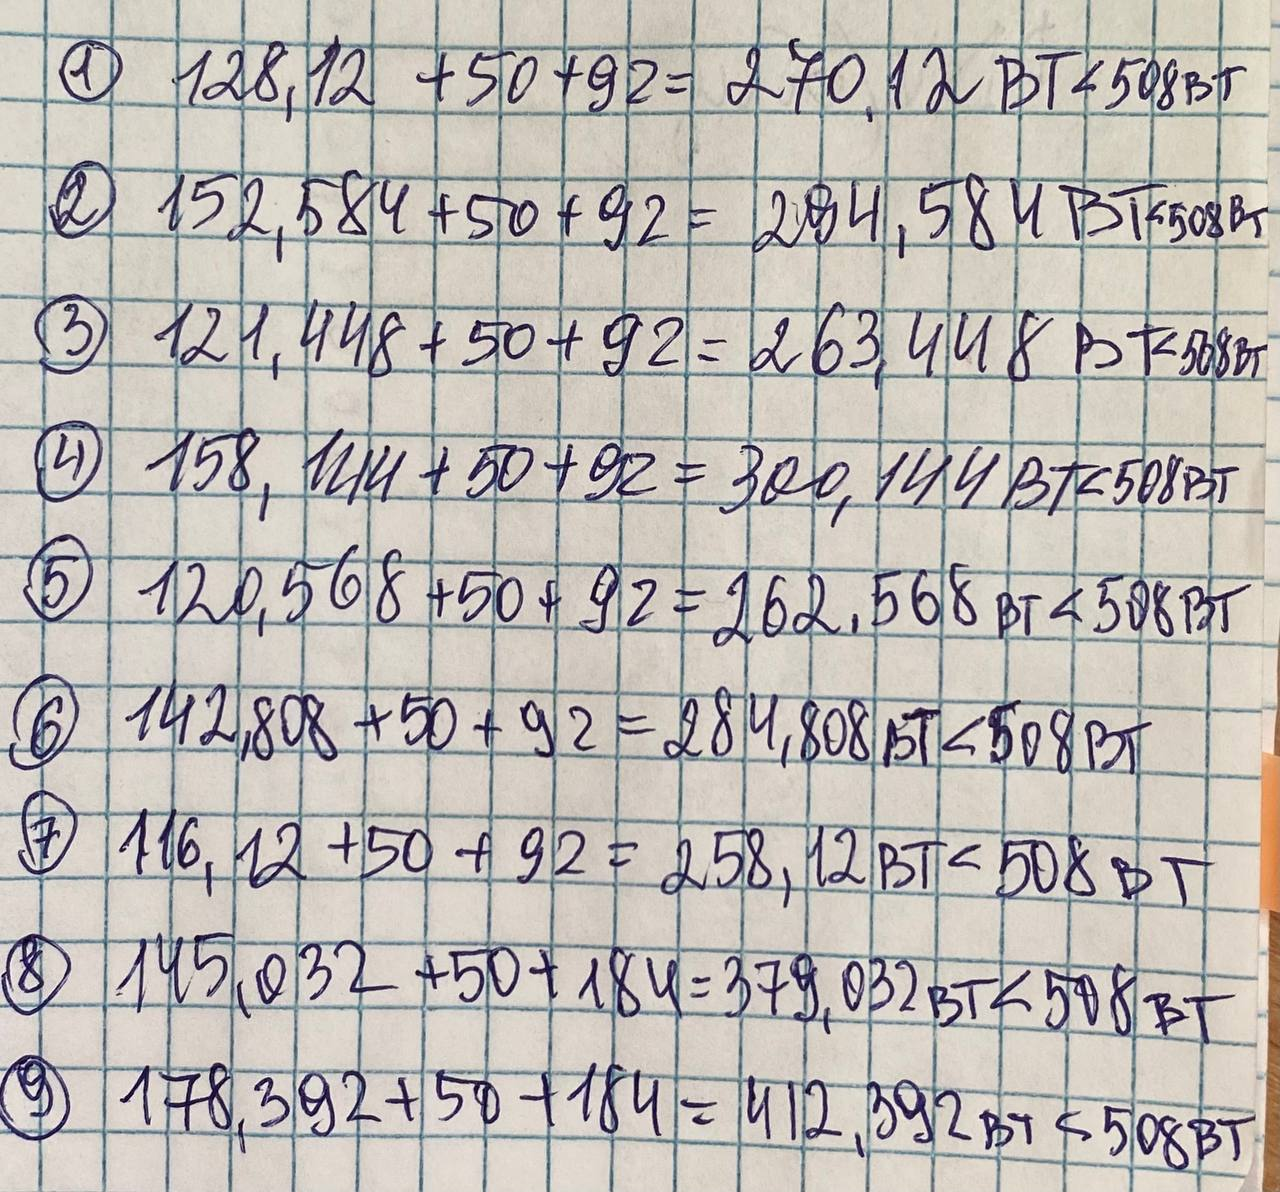 ① 128,12 +50+92= 270,12 ВТ<508ВТ
② 152,584+50+92= 294,584 ВТ<508ВТ
③ 121,448+50+92=263,448 ВТ<508ВТ
④ 158,144+50+92=300,144 ВТ<508ВТ
⑤ 120,568+50+92=262,568 ВТ<508ВТ
⑥ 142,808+50+92=284,808 ВТ<508ВТ
⑦ 116,12+50+92=258,12 ВТ<508 ВТ
⑧ 145,032+50+184=379,032 ВТ<508 ВТ
⑨ 178,392+50+184=412,392 ВТ<508ВТ